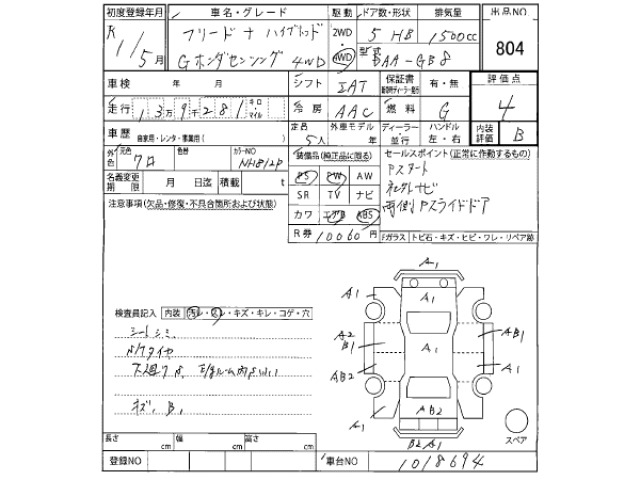 初度登録年月 車名・グレード 駆動 ドア数・形状 排気量 出品NO.
R 1/5月 フリード+ ハイブリッド 2WD・4WD 5 HB 1500cc 804
Gホンダセンシング 4WD 型式 DAA-GB8
車検 年 月 シフト IAT 保証書 有・無 評価点
走行 139281 キロ マイル 冷房 AAC 燃料 G 4
車歴 自家用・レンタ・事業用( ) 定員 5人 外車モデル 年 ディーラー・並行 ハンドル 左・右 内装評価 B
外色 元色 クロ 色替 カラーNO NH812P
装備品(純正品に限る) セールスポイント(正常に作動するもの)
PS PW AW Pスタート
名義変更期限 月 日迄 積載 t SR TV ナビ
注意事項(欠品・修復・不具合箇所および状態) カワ エアB ABS 両側Pスライドドア
R券 10060円 Fガラス トビ石・キズ・ヒビ・ワレ・リペア跡
検査員記入 内装 汚レ・スレ・キズ・キレ・コゲ・穴
シートシミ
下廻りサ
キズ、B,
A1
A1 A1 A1
A2 B1 A1 AB1
AB2 A1
A1 AB2
B2 A1
スペア
長さ cm 幅 cm 高さ cm
登録NO 車台NO 1018694